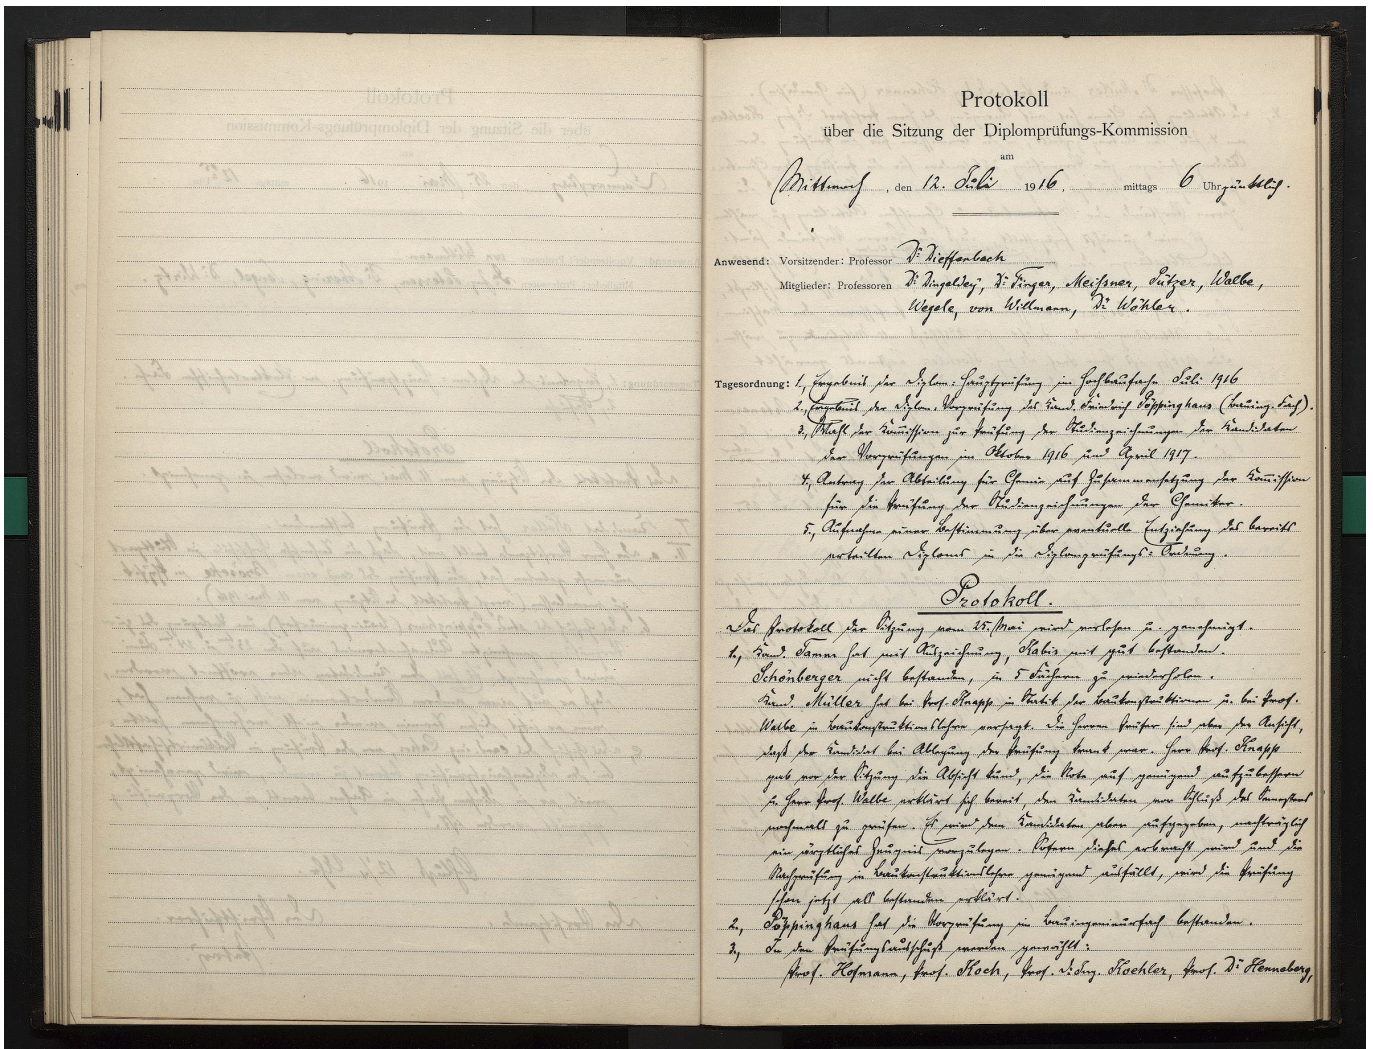 Protokoll
über die Sitzung der Diplomprüfungs-Kommission
am
Mittwoch, den 12. Juli 1916, mittags 6 Uhr pünktlich.
Anwesend: Vorsitzender: Professor Dr. Dieffenbach
Mitglieder: Professoren Dr. Dingeldey, Dr. Finger, Meißner, Pützer, Walbe,
Wegele, von Willmann, Dr. Wöhler.
Tagesordnung: 1., Ergebnis der Diplom-Hauptprüfung im Hochbaufache Juli 1916
2., Ergebnis der Diplom-Vorprüfung des Kand. Friedrich Pöppinghaus (Bauing. Fach).
3., Wahl der Kom̅ission zur Prüfung der Studienzeichnungen der Kandidaten
der Vorprüfungen im Oktober 1916 und April 1917.
4., Antrag der Abteilung für Chemie auf Zusammensetzung der Kom̅ission
für die Prüfung der Studienzeichnungen der Chemiker.
5., Aufnahme einer Bestimmung über eventuelle Entziehung des bereits
erteilten Diploms in die Diplomprüfungs-Ordnung.
Protokoll.
Das Protokoll der Sitzung vom 25. Mai wird verlesen u. genehmigt.
1., Kand. Tamm hat mit Auszeichnung, Kabis mit gut bestanden.
Schönberger nicht bestanden, in 5 Fächern zu wiederholen.
Kand. Müller hat bei Prof. Knapp in Statik der Baukonstruktionen u. bei Prof.
Walbe in Baukonstruktionslehre versagt. Die Herren Prüfer sind aber der Ansicht,
daß der Kandidat bei Ablegung der Prüfung krank war. Herr Prof. Knapp
gab vor der Sitzung die Absicht kund, die Note auf genügend aufzubessern
u. Herr Prof. Walbe erklärt sich bereit, den Kandidaten vor Schluß des Semesters
nochmals zu prüfen. Es wird dem Kandidaten aber aufgegeben, nachträglich
ein ärztliches Zeugnis vorzulegen. Sofern dieses erbracht wird und die
Nachprüfung in Baukonstruktionslehre genügend ausfällt, wird die Prüfung
schon jetzt als bestanden erklärt.
2., Pöppinghaus hat die Vorprüfung im Bauingenieurfach bestanden.
3., In den Prüfungsausschuß werden gewählt:
Prof. Hofmann, Prof. Koch, Prof. Dr. Ing. Koehler, Prof. Dr. Henneberg,